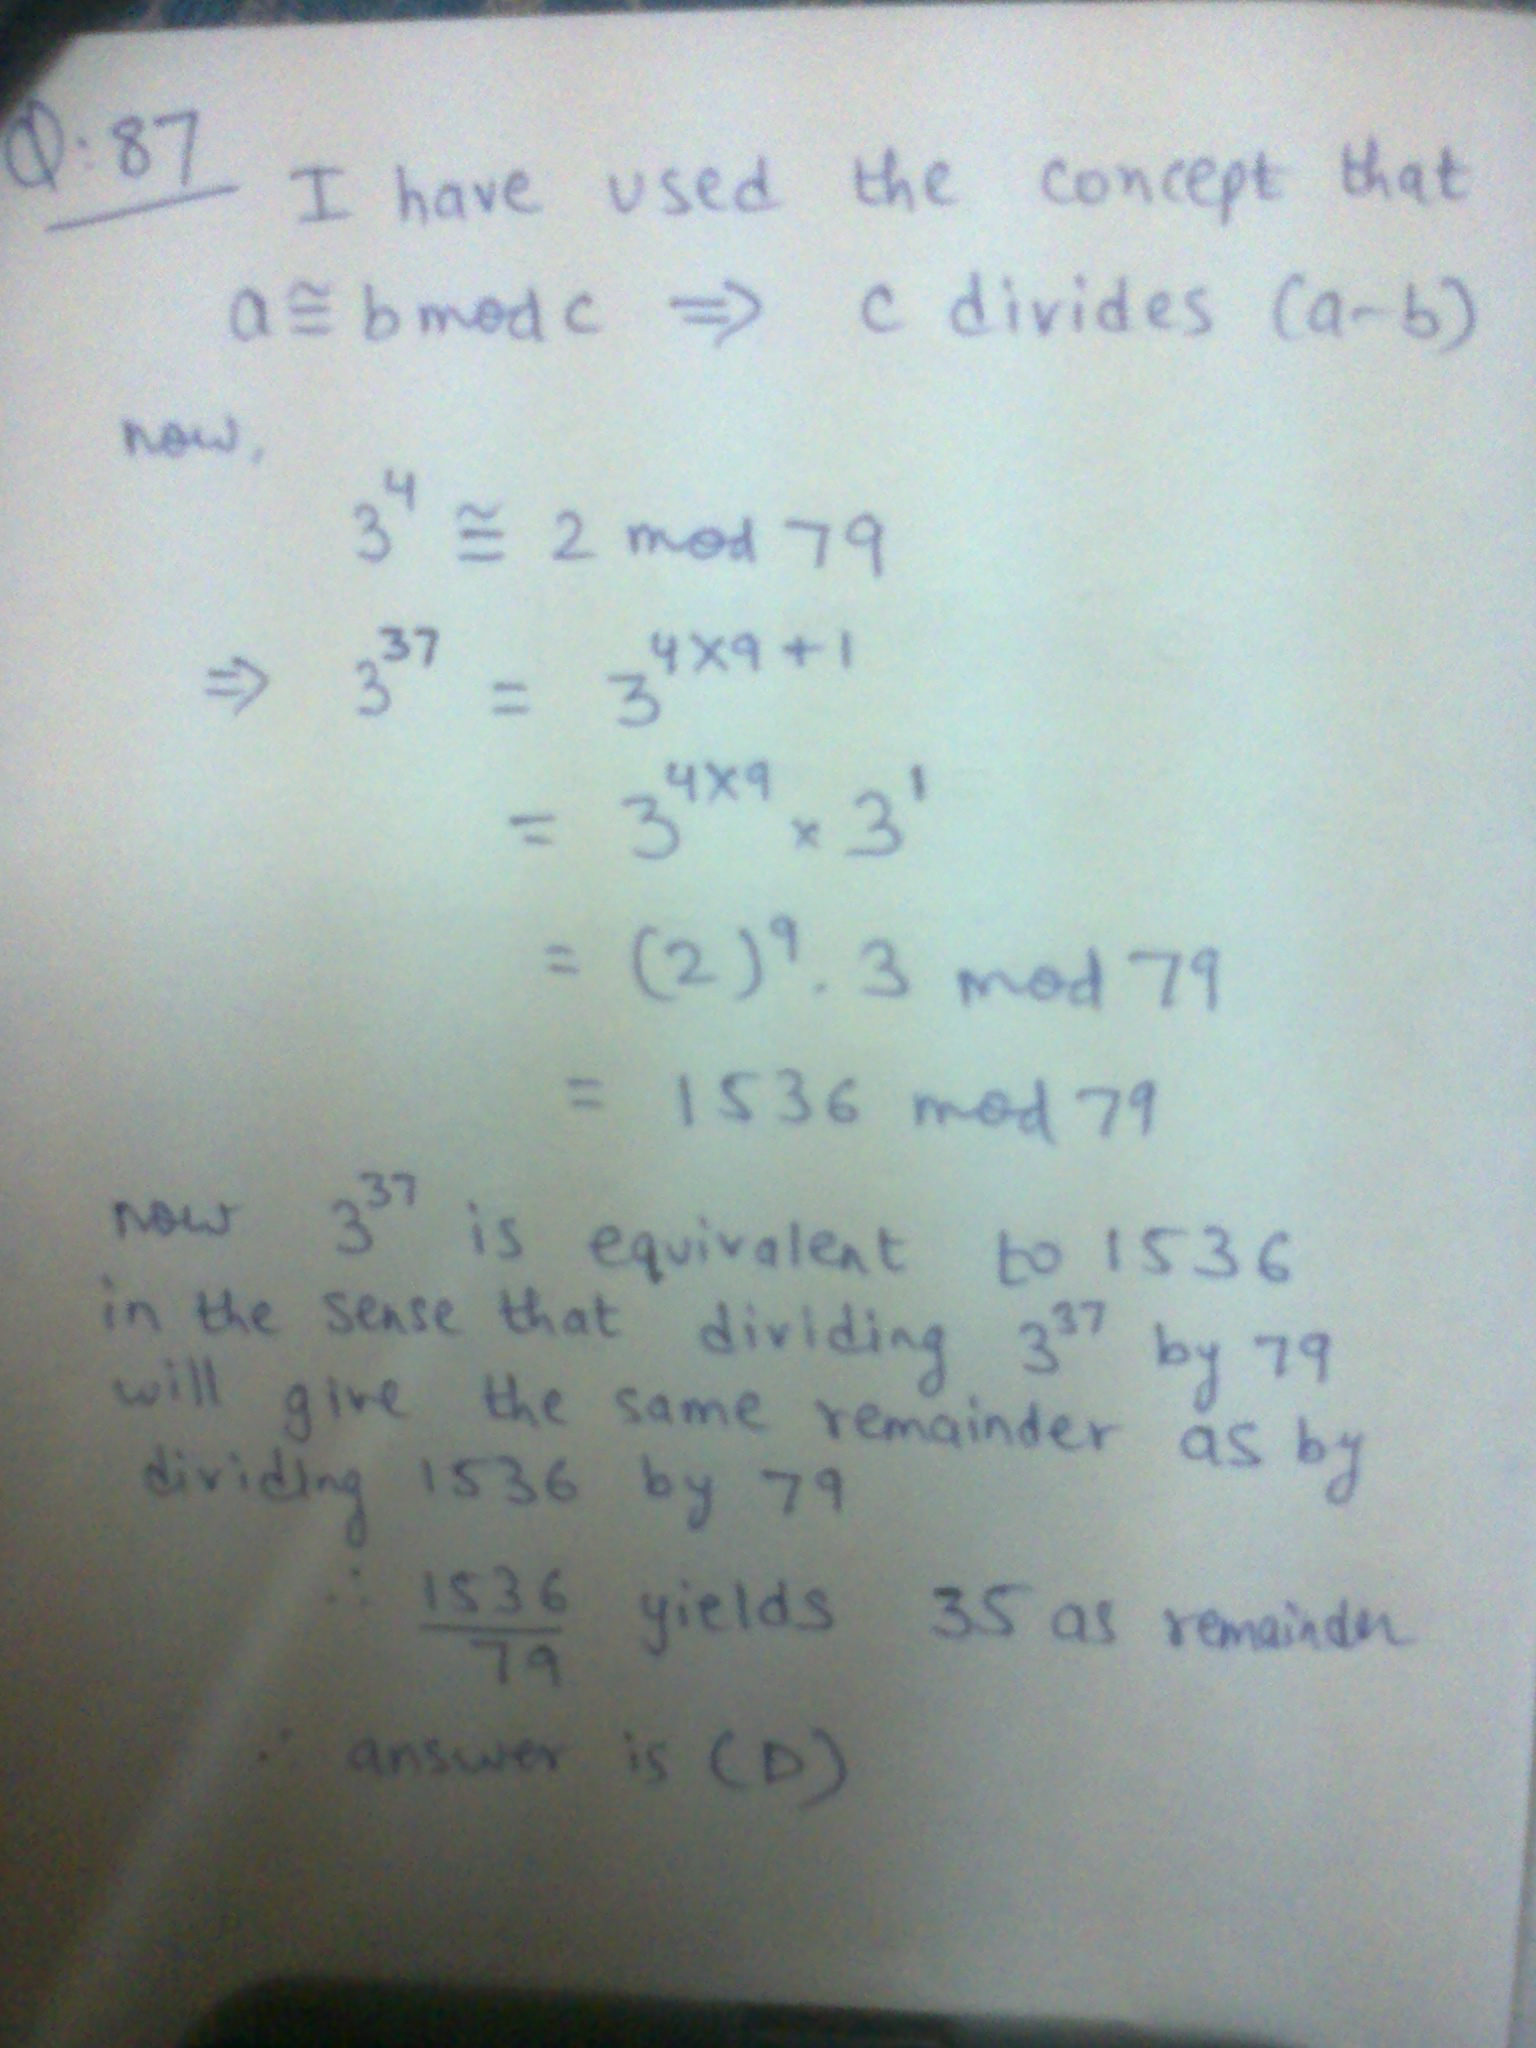 Q:87 I have used the concept that
a ≅ b mod c ⇒ c divides (a-b)
now,
3^4 ≅ 2 mod 79
⇒ 3^37 = 3^(4×9+1)
= 3^(4×9) × 3^1
= (2)^9 . 3 mod 79
= 1536 mod 79
now 3^37 is equivalent to 1536
in the sense that dividing 3^37 by 79
will give the same remainder as by
dividing 1536 by 79
∴ 1536/79 yields 35 as remainder
∴ answer is (D)